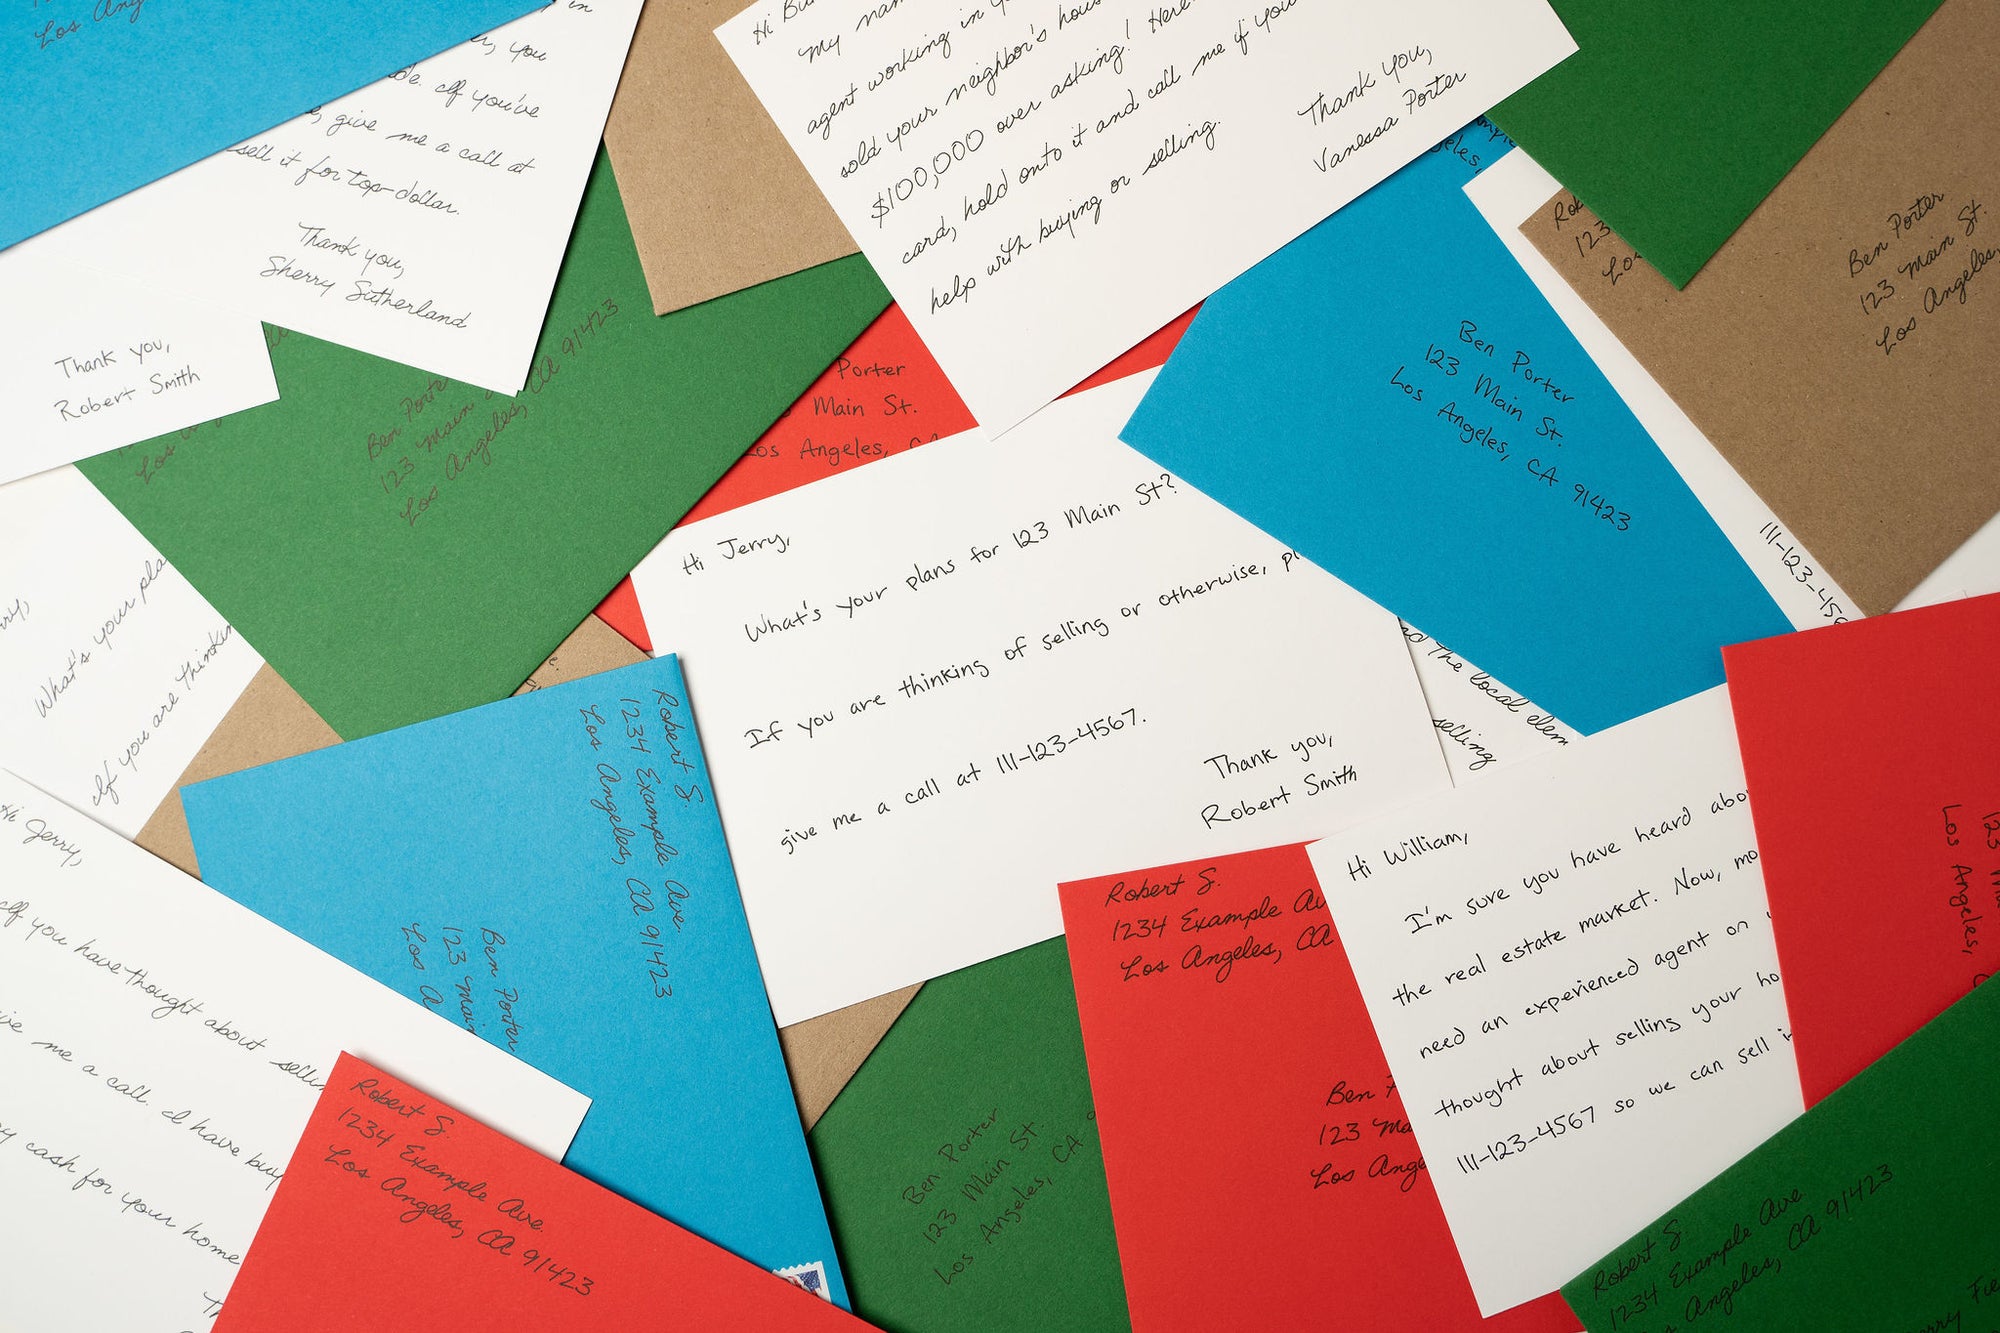 Los Ang
in
you
If you've
give me a call at
sell it for top-dollar.
Thank you,
Sherry Sutherland
Thank you,
Robert Smith
Hi
My
agent working in
sold your neighbor's
$100,000 over asking! Here
card, hold onto it and call me if you
help with buying or selling.
Thank you,
Vanessa Porter
Ben Porter
123 Main St.
Los Angeles,
123
Ben Porter
123 Main St.
Los Angeles, CA 91423
Los
Ben
123 Main
Los Angeles, CA 91423
Porter
Main St.
Los Angeles, CA
Hi Jerry,
What's your plans for 123 Main St?
If you are thinking of selling or otherwise,
give me a call at 111-123-4567.
Thank you,
Robert Smith
111-123-456
the local
selling
What's your
If you are
Hi Jerry,
If you have thought about
me a call. I have
cash for your home
Robert S.
1234 Example Ave.
Los Angeles, CA 91423
Ben Porter
123 Main
Los A
Robert S.
1234 Example Ave.
Los Angeles, CA 91423
Ben Porter
123 Main St.
Los Angeles, CA
Robert S.
1234 Example
Los Angeles, CA
Ben
123
Los
Hi William,
I'm sure you have heard
the real estate market. Now,
need an experienced agent on
thought about selling your
111-123-4567 so we can sell
Los Angeles,
Robert S.
1234 Example Ave
Angeles, CA 91423